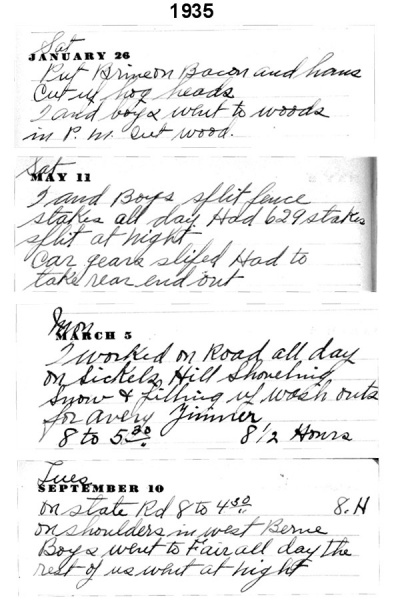 1935
Sat
JANUARY 26
Put Brine on Bacon and hams
Cut up hog heads
I and boys went to woods
in P.M. Cut wood.
Sat
MAY 11
I and Boys split fence
stakes all day Had 629 stakes
split at night
Car gears sliped Had to
take rear end out
Mon
MARCH 5
I worked on Road all day
on Sickels Hill Shoveling
snow & filling up wash outs
for Avery Zimmer
8 to 5 30 8 1/2 Hours
Tues
SEPTEMBER 10
on state Rd 8 to 4 30 8.H
on shoulders in west Berne
Boys went to Fair all day the
rest of us went at night